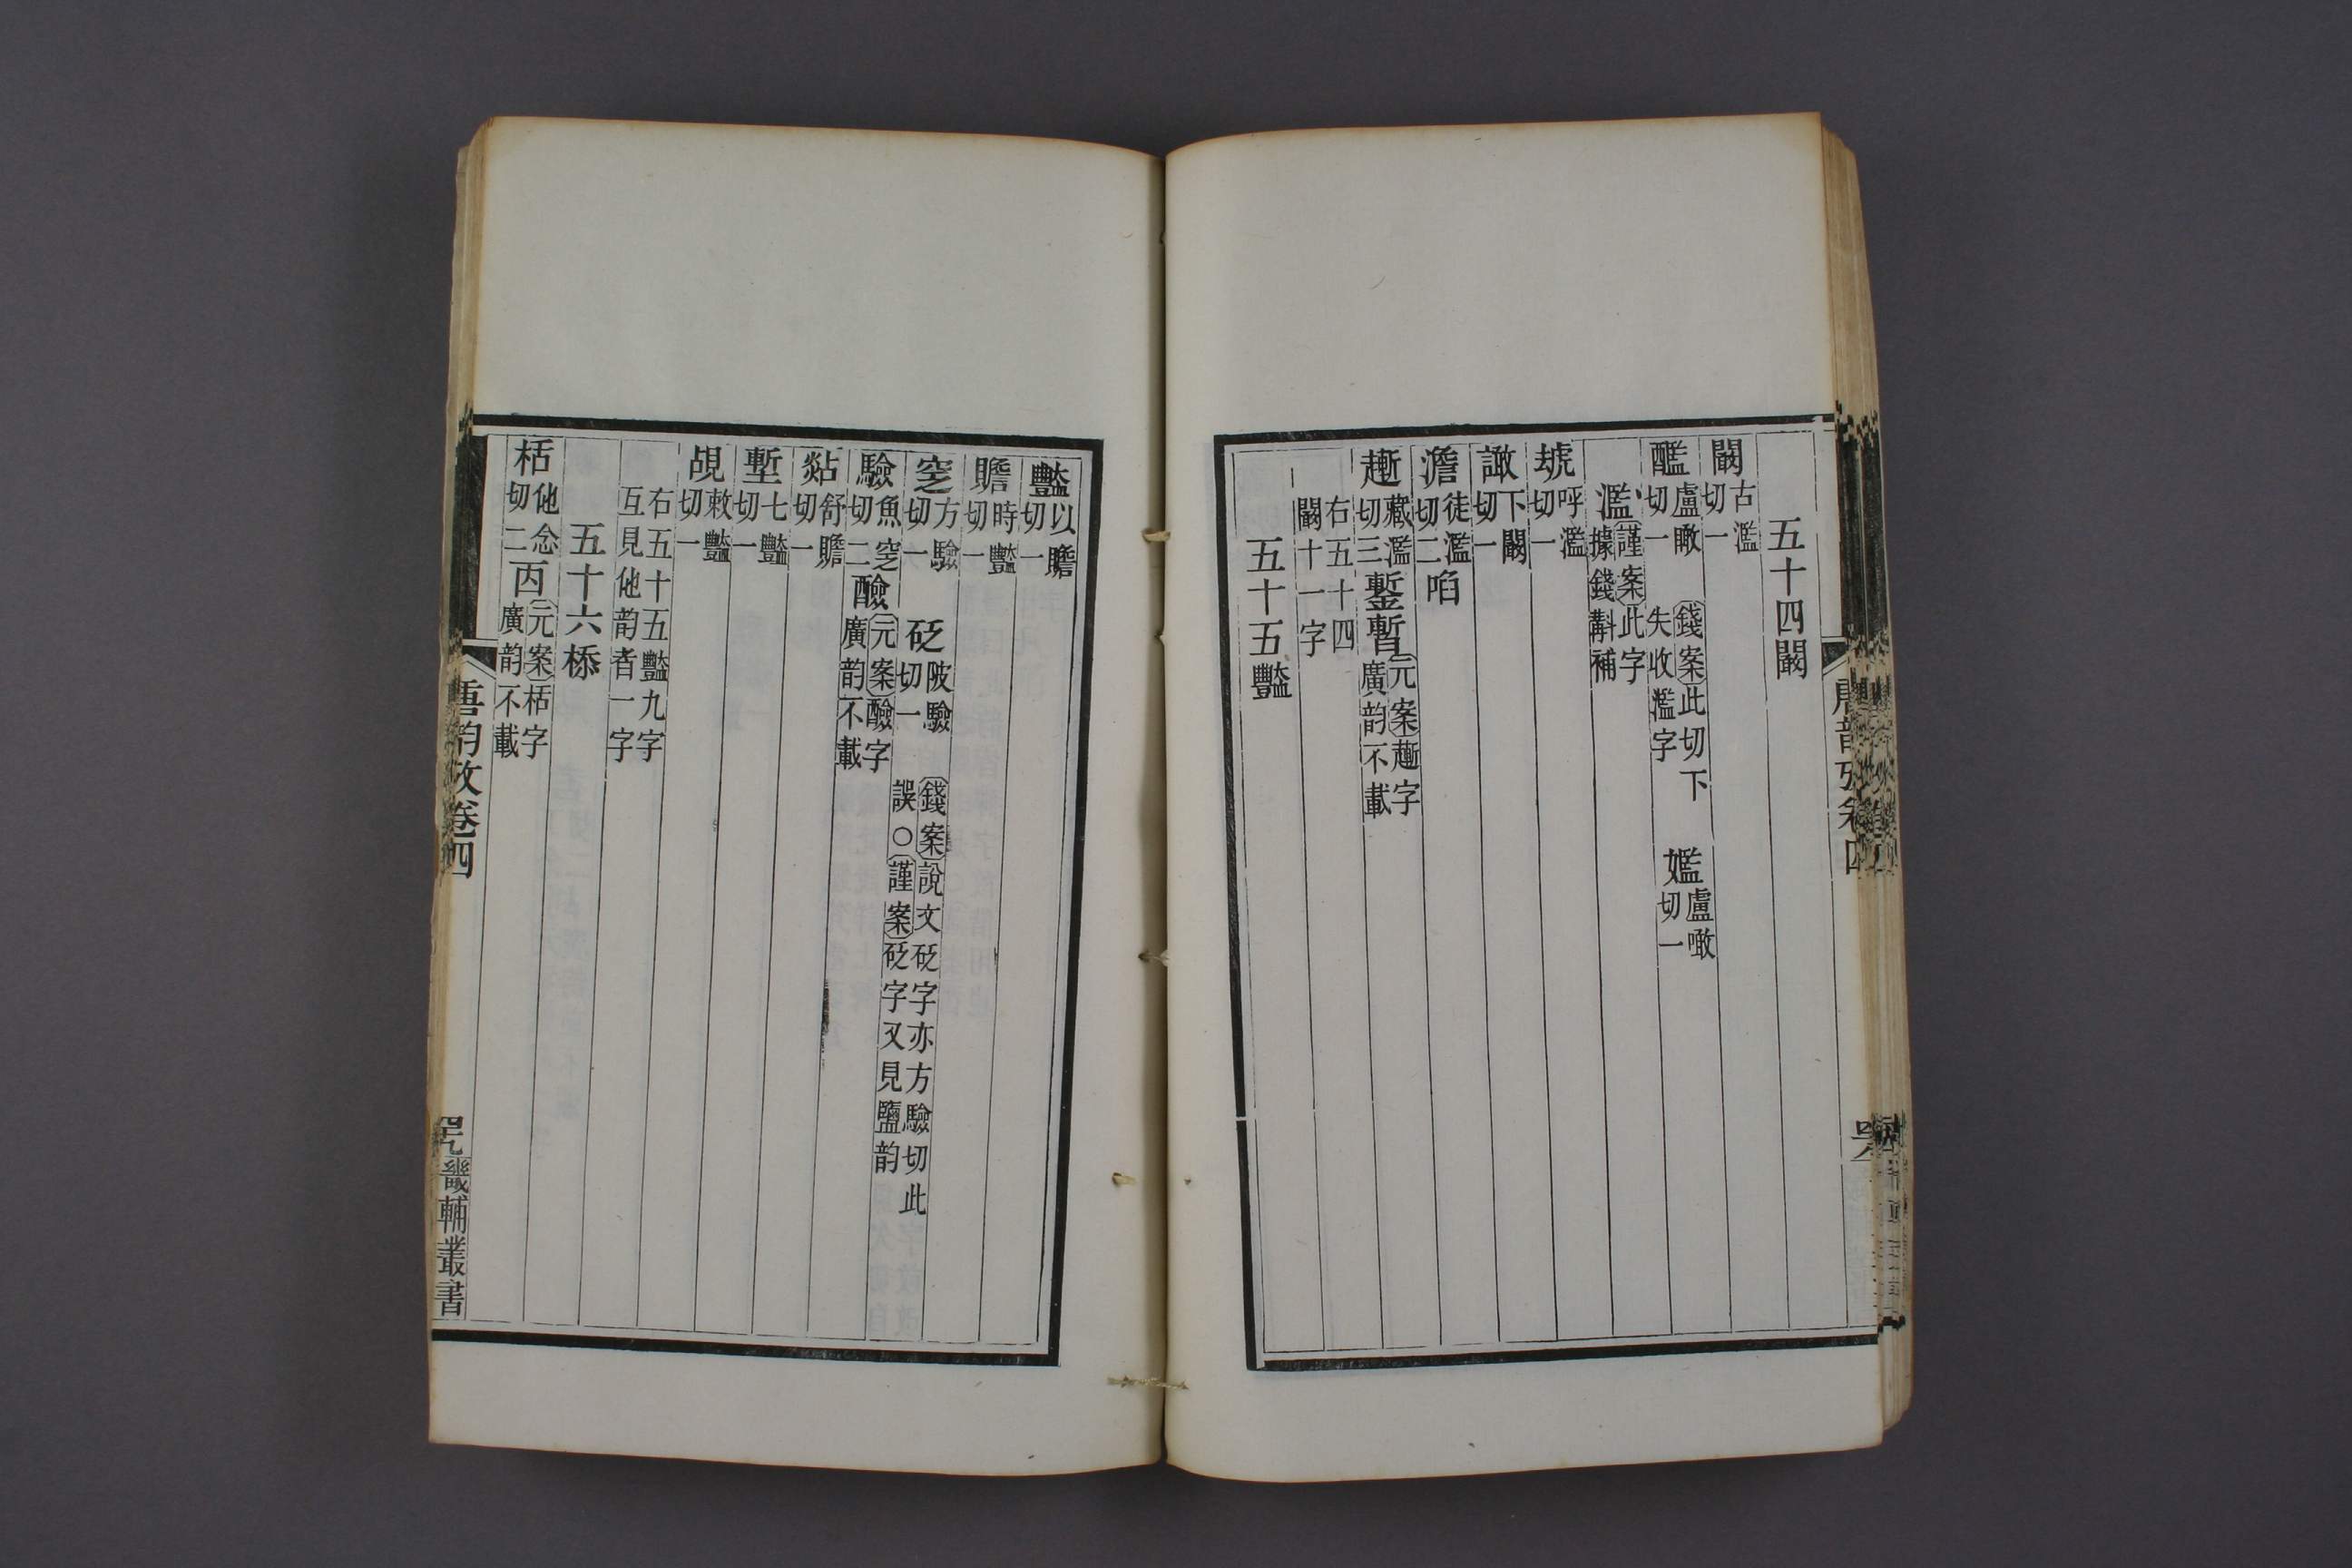 五十四闞
闞古濫切一
醶盧瞰切一 錢案此切下失收濫字 㜮盧噉切一
濫謹案此字據錢斠補
㺖呼濫切一
譀下闞切一
澹徒濫切二啗
䟅藏濫切三鏨暫元案䟅字廣韵不載
右五十四闞十一字
五十五豔
豔以贍切一
贍時豔切一
窆方驗切一 砭陂驗切一 錢案說文砭字亦方驗切此誤○謹案砭字又見鹽韵
驗魚窆切二醶元案醶字廣韵不載
㷔舒贍切一
塹七豔切一
覘敕豔切一
右五十五豔九字互見他韵者一字
五十六㮇
栝他念切二㐁元案栝字廣韵不載
唐韵攷卷四
畿輔叢書